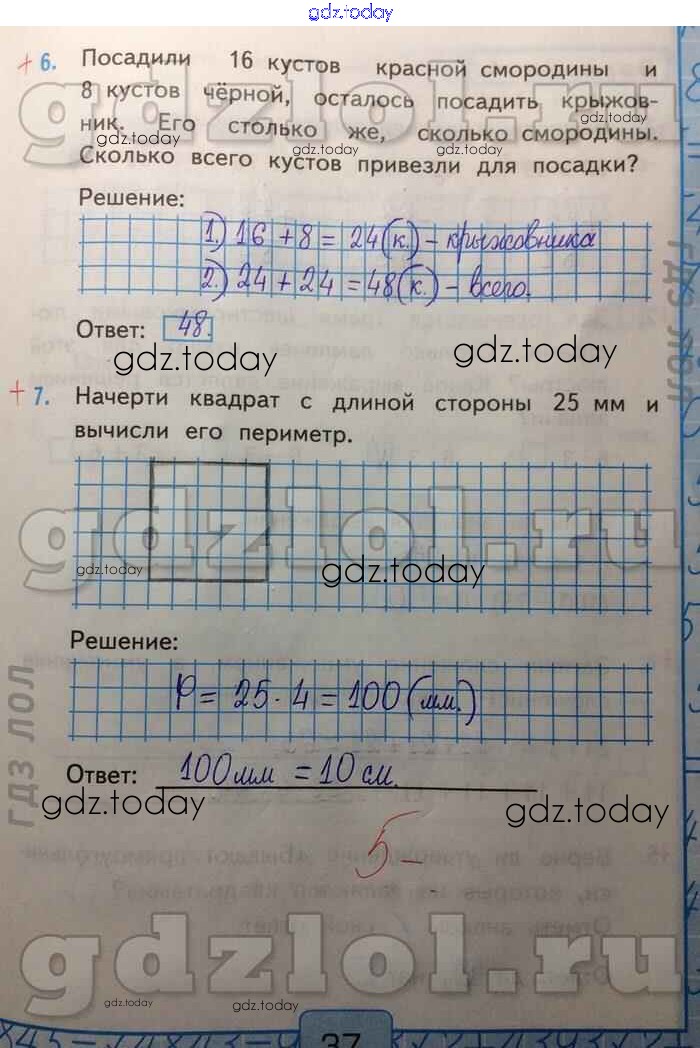 gdz.today
+ 6. Посадили 16 кустов красной смородины и
8 кустов чёрной, осталось посадить крыжов-
ник. Его столько же, сколько смородины.
gdz.today
gdz.today
gdz.today
Сколько всего кустов привезли для посадки?
Решение:
1.) 16 + 8 = 24 (к.) – крыжовника
2.) 24 + 24 = 48 (к.) – всего.
Ответ: 48.
gdz.today
gdz.today
+ 7. Начерти квадрат с длиной стороны 25 мм и
вычисли его периметр.
gdzlol.ru
gdz.today
gdz.today
Решение:
P = 25 · 4 = 100 (мм.)
ГДЗ ЛОЛ
Ответ: 100 мм = 10 см.
gdz.today
gdz.today
5–
gdzlol.ru
gdz.today
gdz.today
37